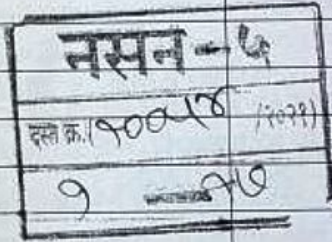 नसन-५
दस्त क्र.(१००५४ /२०२१)
१ — १७